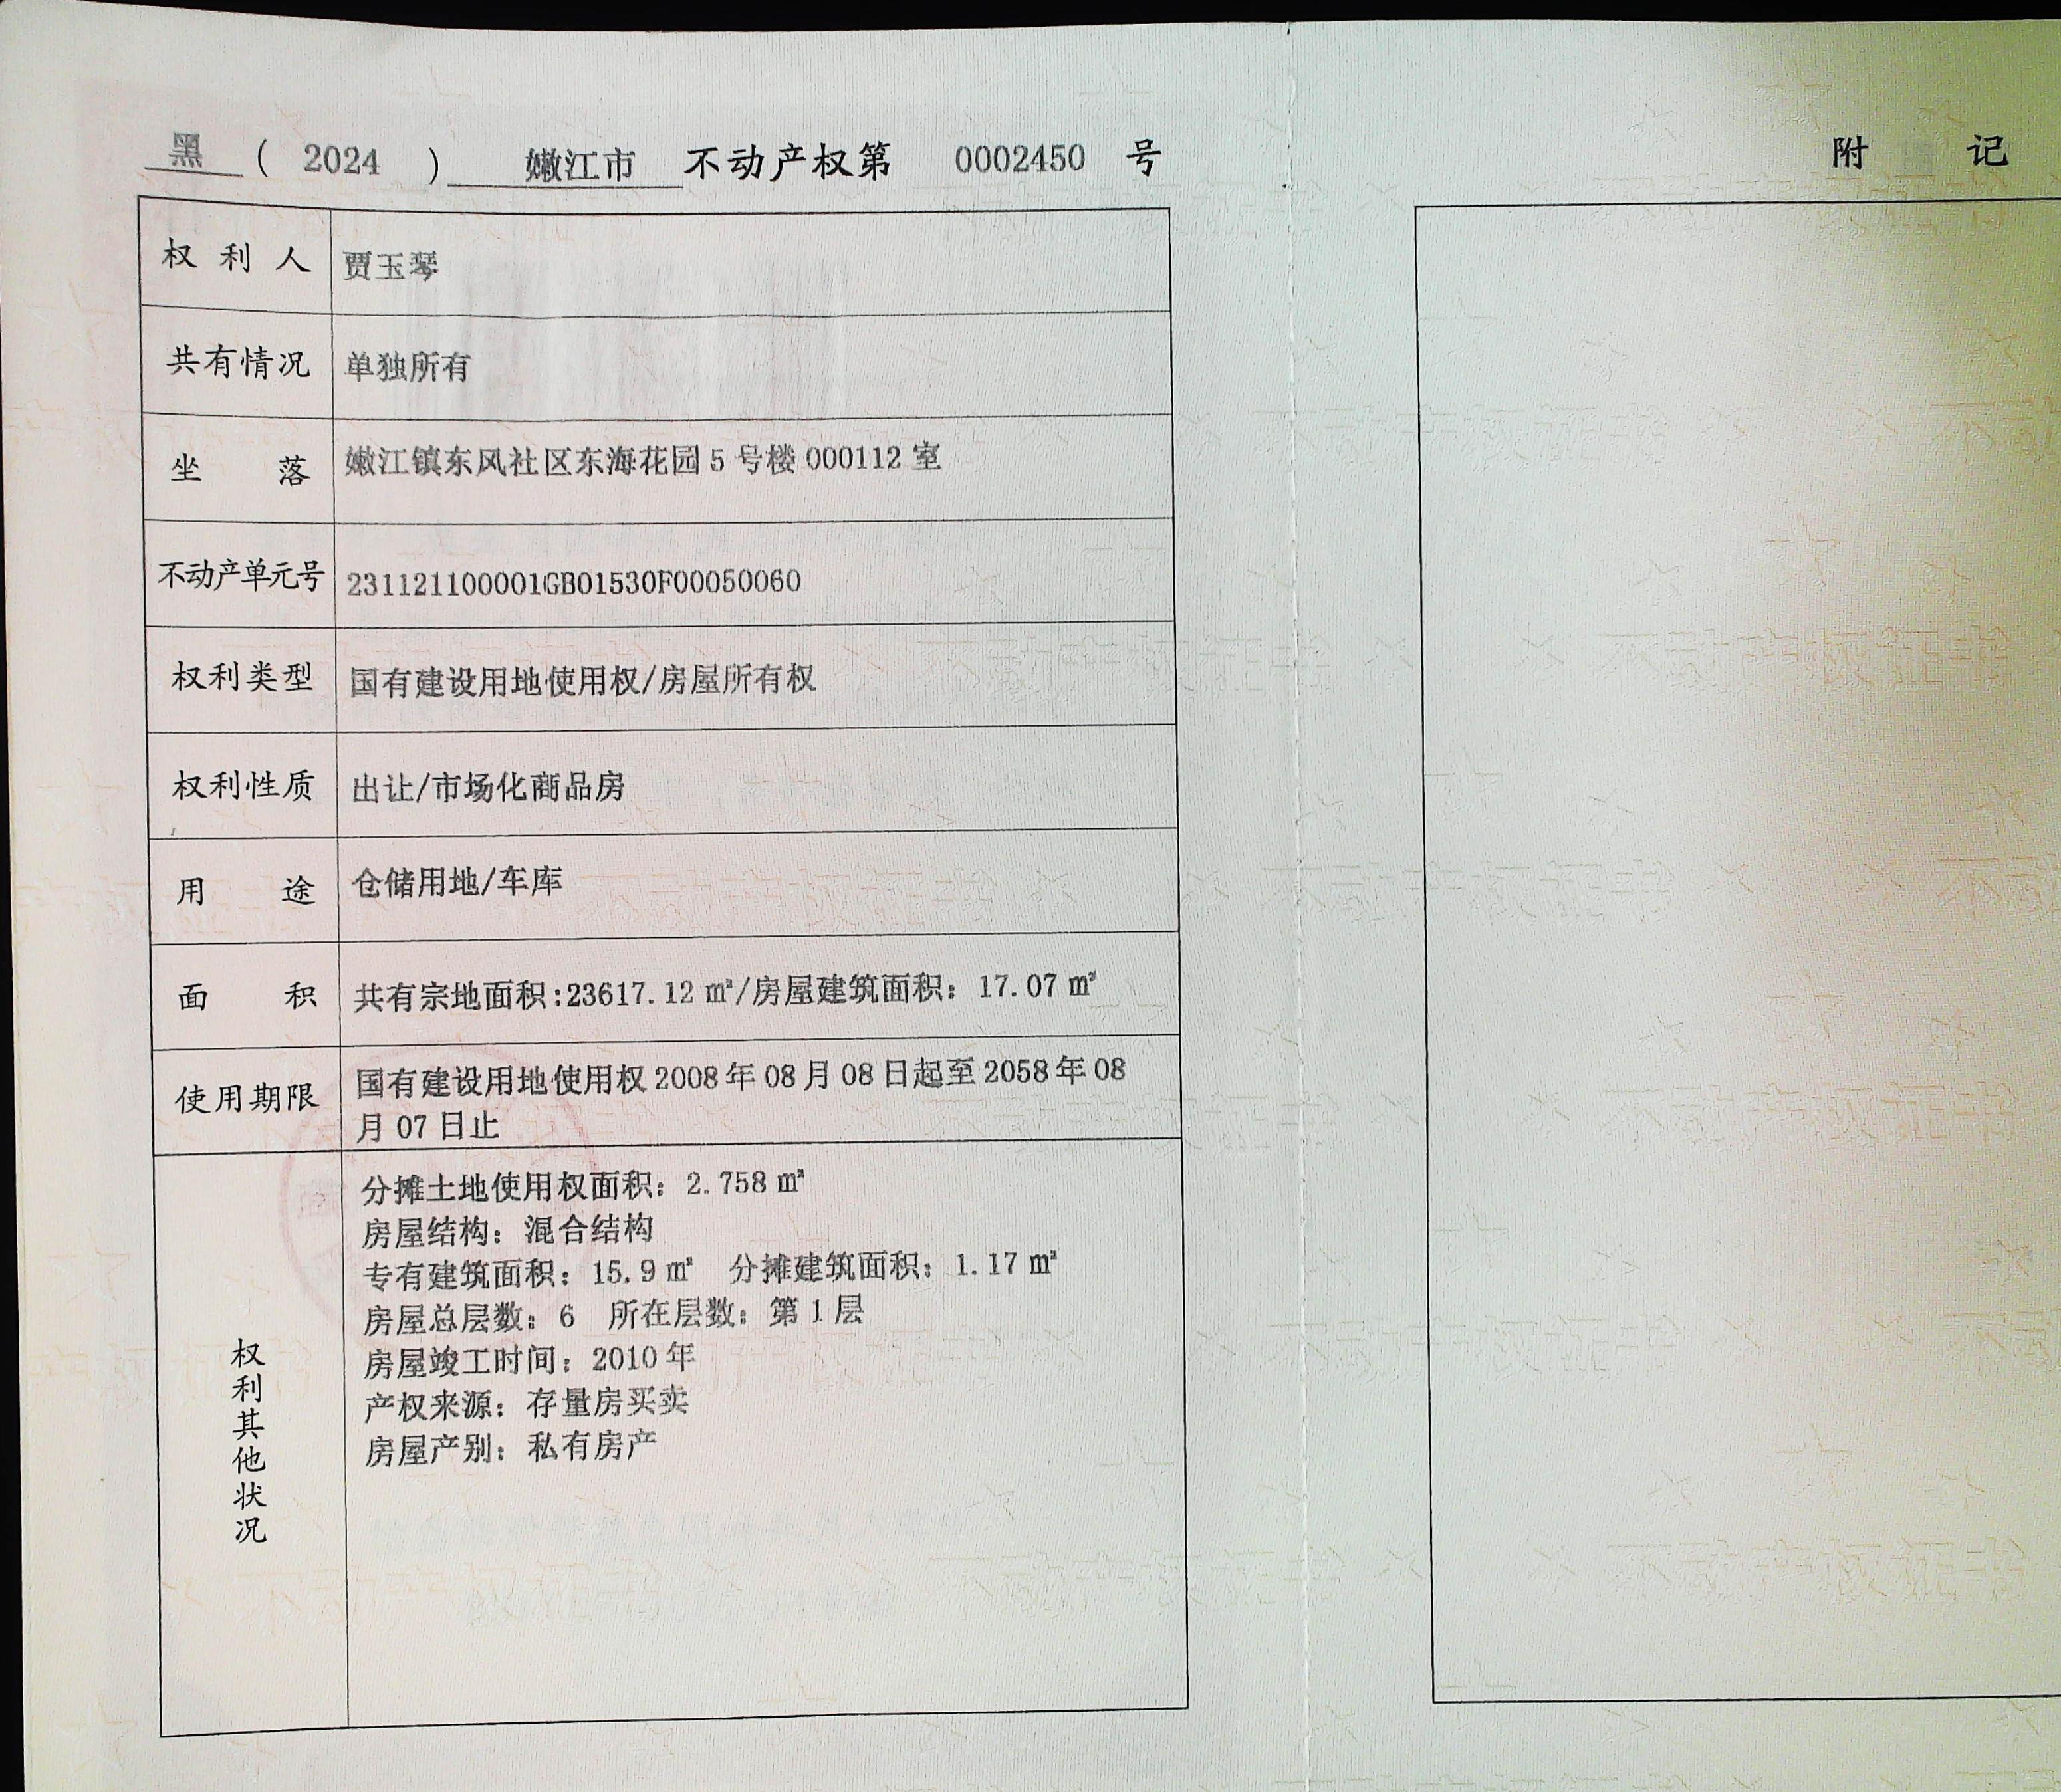 黑 ( 2024 ) 嫩江市 不动产权第 0002450 号
权利人 贾玉琴
共有情况 单独所有
坐落 嫩江镇东风社区东海花园 5 号楼 000112 室
不动产单元号 231121100001GB01530F00050060
权利类型 国有建设用地使用权/房屋所有权
权利性质 出让/市场化商品房
用途 仓储用地/车库
面积 共有宗地面积:23617.12 ㎡/房屋建筑面积：17.07 ㎡
使用期限 国有建设用地使用权 2008 年 08 月 08 日起至 2058 年 08
月 07 日止
权利其他状况
分摊土地使用权面积：2.758 ㎡
房屋结构：混合结构
专有建筑面积：15.9 ㎡ 分摊建筑面积：1.17 ㎡
房屋总层数：6 所在层数：第 1 层
房屋竣工时间：2010 年
产权来源：存量房买卖
房屋产别：私有房产
附 记